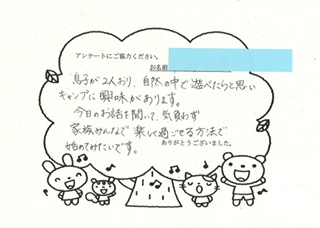 アンケートにご協力ください。
お名前
息子が2人おり、自然の中で遊べたらと思い
キャンプに興味があります。
今日のお話を聞いて、気負わず
家族みんなで楽しく過ごせる方法で
始めてみたいです。
ありがとうございました。